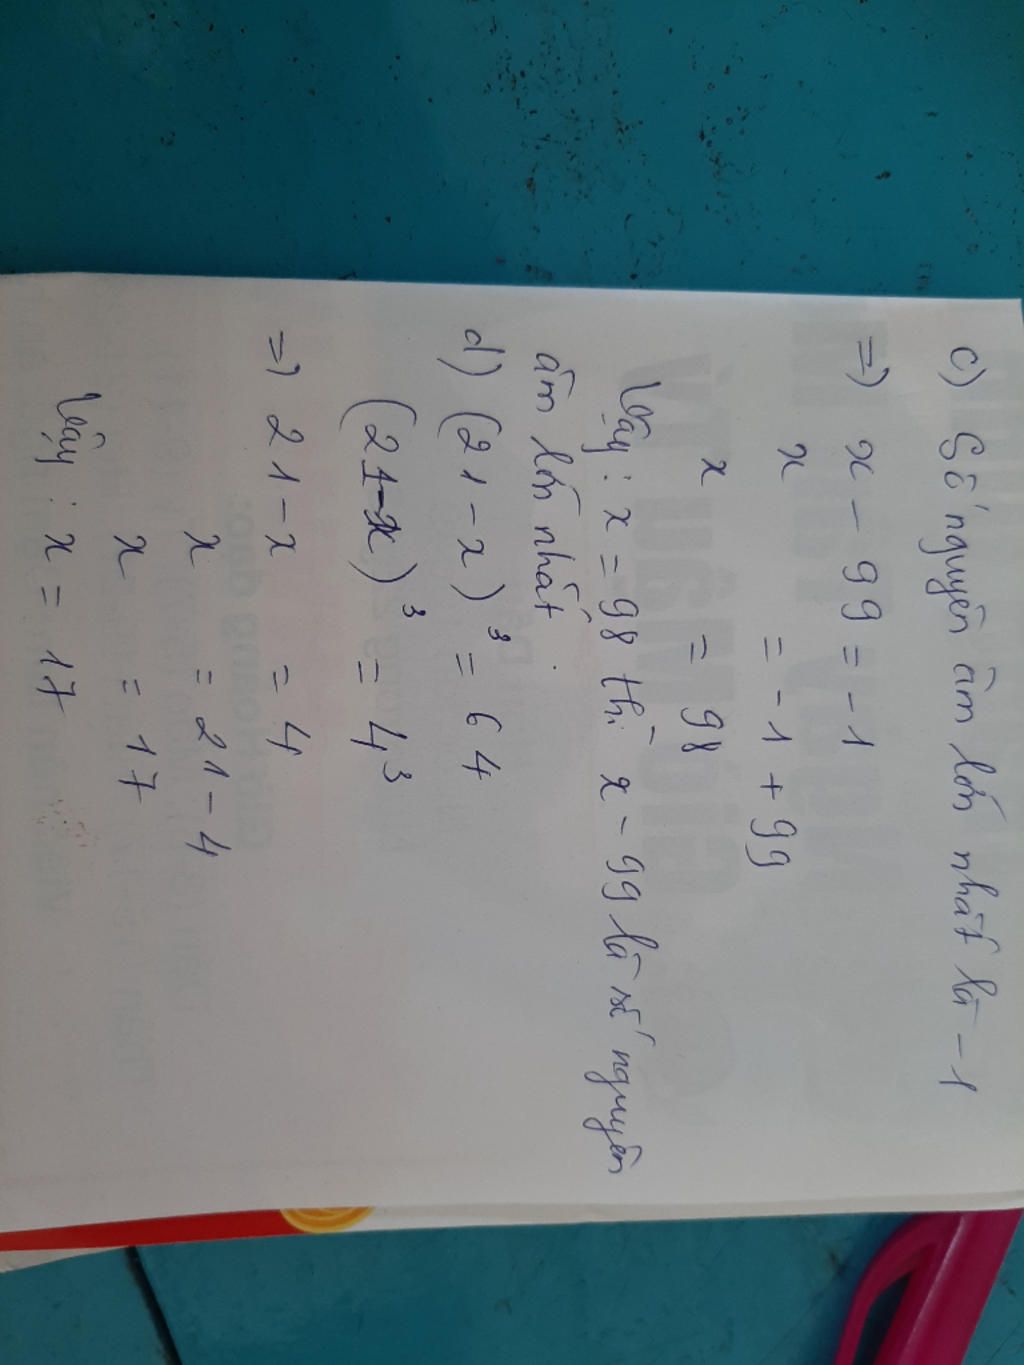 c) Số nguyên âm lớn nhất là -1
=> x - 99 = -1
x = -1 + 99
x = 98
Vậy : x = 98 thì x - 99 là số nguyên
âm lớn nhất.
d) (21 - x)³ = 64
(21-x)³ = 4³
=> 21-x = 4
x = 21-4
x = 17
Vậy : x = 17